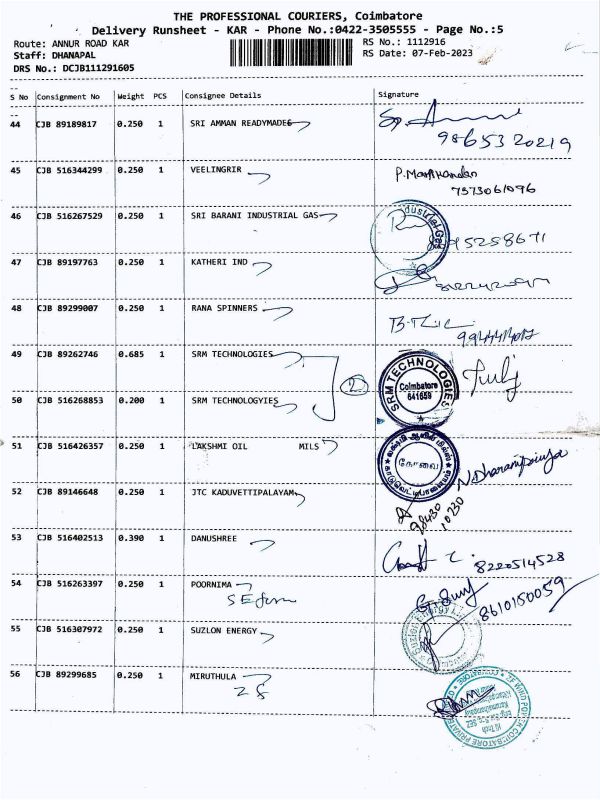 THE PROFESSIONAL COURIERS, Coimbatore
Delivery Runsheet - KAR - Phone No.:0422-3505555 - Page No.:5
Route: ANNUR ROAD KAR
RS No.: 1112916
Staff: DHANAPAL
RS Date: 07-Feb-2023
DRS No.: DCJB111291605
S No Consignment No Weight PCS Consignee Details Signature
44 CJB 89189817 0.250 1 SRI AMMAN READYMADES
9865320219
45 CJB 516344299 0.250 1 VEELINGRIR
7373061096
46 CJB 516267529 0.250 1 SRI BARANI INDUSTRIAL GAS
dustrial Gas
95258671
47 CJB 89197763 0.250 1 KATHERI IND
48 CJB 89299007 0.250 1 RANA SPINNERS
49 CJB 89262746 0.685 1 SRM TECHNOLOGIES
2
SRM TECHNOLOGIES
Coimbatore
641659
50 CJB 516268853 0.200 1 SRM TECHNOLOGYIES
51 CJB 516426357 0.250 1 LAKSHMI OIL MILS
கோவை
N. Dharanipriya
52 CJB 89146648 0.250 1 JTC KADUVETTIPALAYAM
98430
10230
53 CJB 516402513 0.390 1 DANUSHREE
8220514528
54 CJB 516263397 0.250 1 POORNIMA
8610150059
55 CJB 516307972 0.250 1 SUZLON ENERGY
56 CJB 89299685 0.250 1 MIRUTHULA